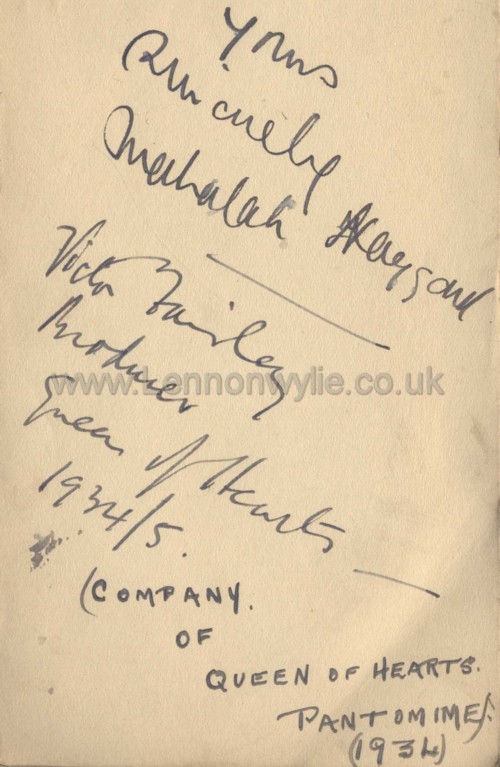 Yours
Sincerely
Mahalah Haggard
Victor Fairley
Producer
Queen of Hearts
1934/5.
www.Lennonwylie.co.uk
(COMPANY.
OF
QUEEN OF HEARTS.
PANTOMIME).
(1934)